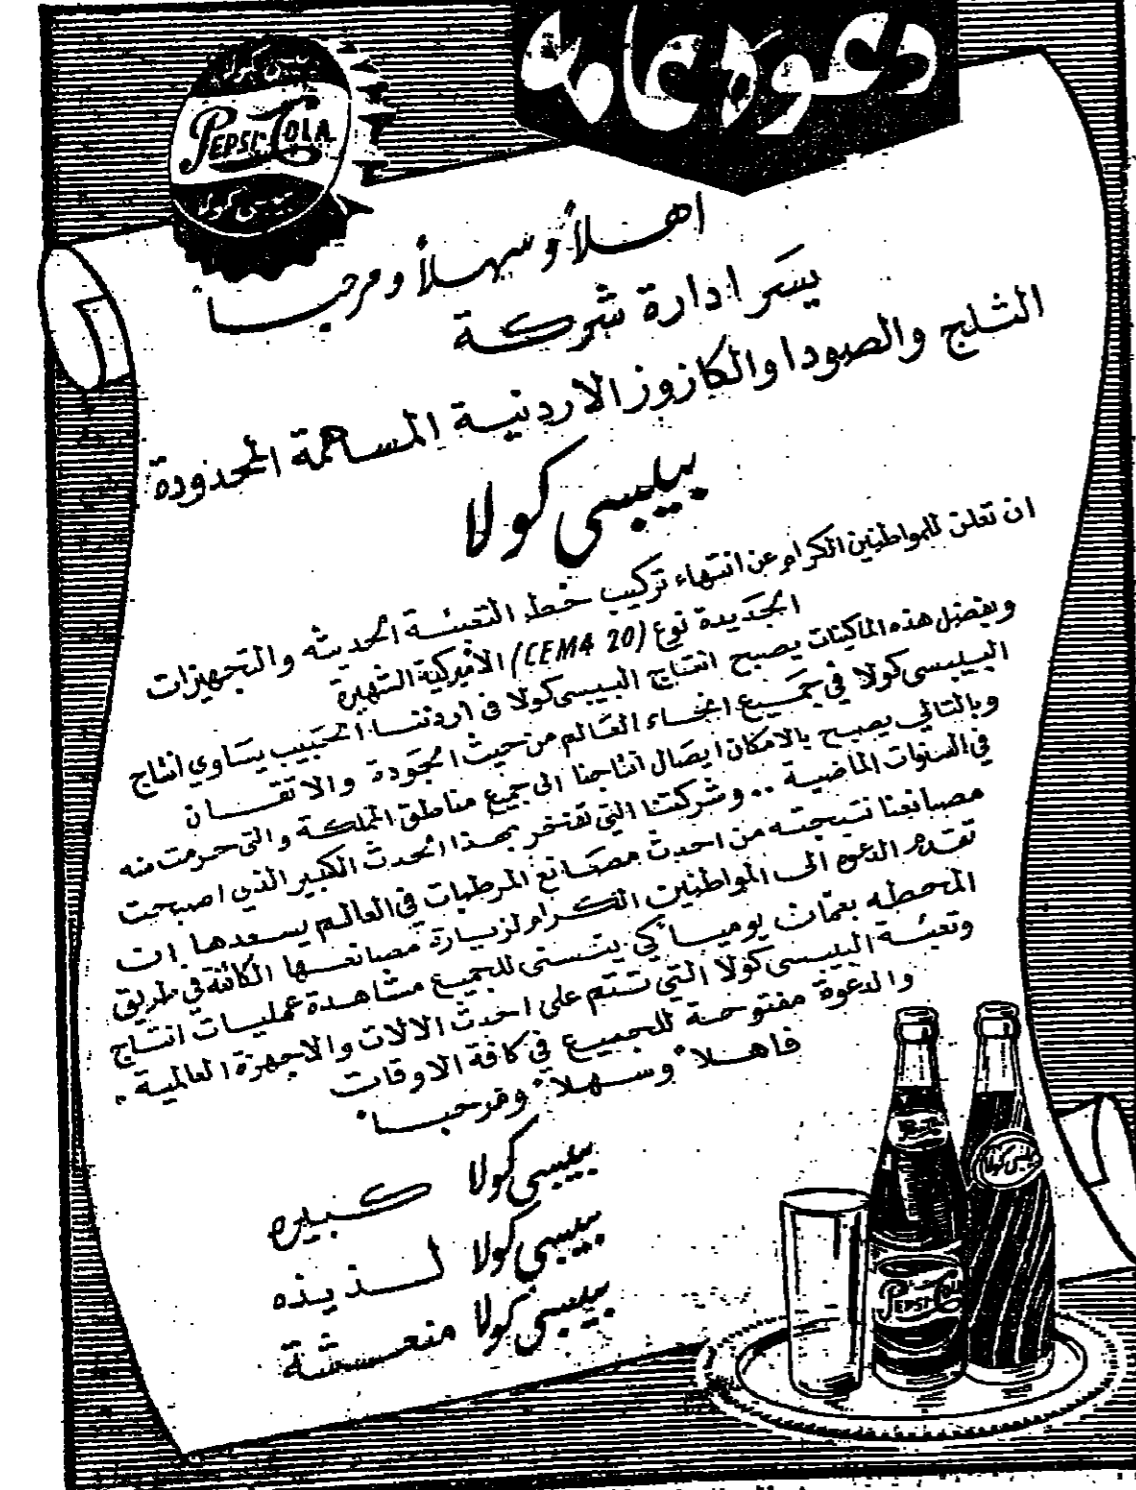 دعوة عامة
بيبسي كولا
PEPSI-COLA
بيبسي كولا
اهلاً وسهلاً ومرحباً
يسر ادارة شركة
الثلج والصودا والكازوز الاردنية المساهمة المحدودة
بيبسي كولا
ان تعلن للمواطنين الكرام عن انتهاء تركيب خط التعبئة الحديثه والتجهيزات
الجديدة نوع (CEMA 20) الاميركية الشهيرة
وبفضل هذه الماكينات يصبح انتاج البيبسي كولا في اردننا الحبيب يساوي انتاج
البيبسي كولا في جميع انحاء العالم من حيث الجودة والاتقان
وبالتالي يصبح بالامكان ايصال انتاجنا الى جميع مناطق المملكة والتي حرمت منه
في السنوات الماضية .. وشركتنا التي تفتخر بهذا الحدث الكبير الذي اصبحت
مصانعنا نتيجته من احدث مصانع المرطبات في العالم يسعدها ان
تقدم الدعوه الى المواطنين الكرام لزيارة مصانعها الكائنة في طريق
المحطه بعمان يومياً كي يتسنى للجميع مشاهدة عمليات انتاج
وتعبئة البيبسي كولا التي تتم على احدث الالات والاجهزة العالمية .
والدعوة مفتوحة للجميع في كافة الاوقات
فاهلاً وسهلاً ومرحباً
بيبسي كولا كبيره
بيبسي كولا لذيذه
بيبسي كولا منعشة
بيبسي كولا
PEPSI-COLA